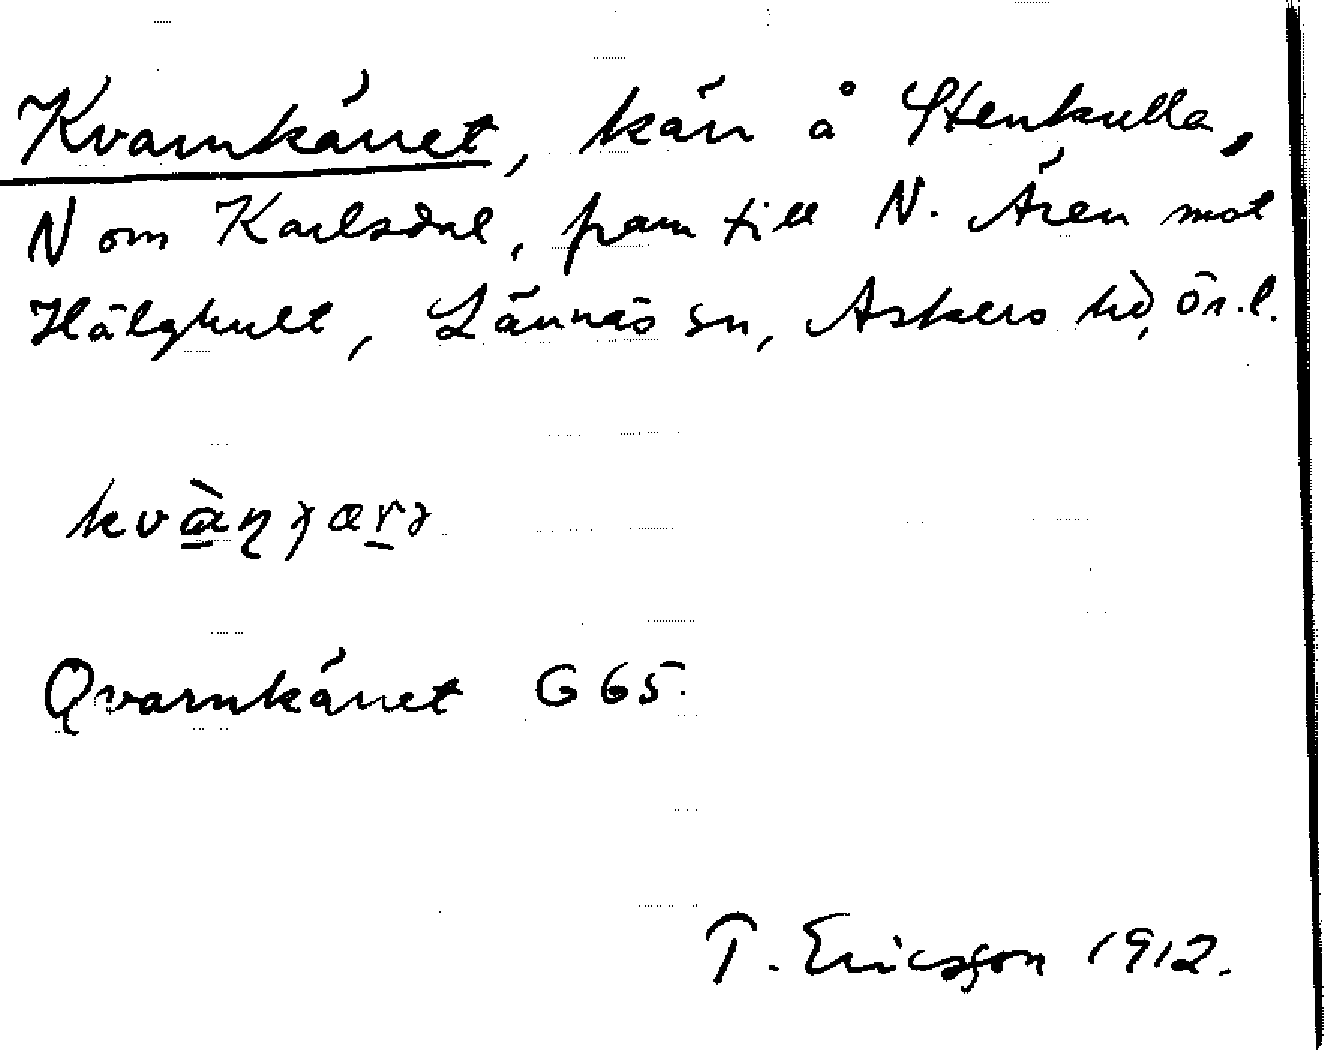 Kvarnkärret, kärr å Stenkulla,
N om Karlsdal, fram till N. Ären mot
Hälghult, Lännäs sn, Askers hd, Ör. l.
kvàɳɟærə
Qvarnkärret G 65.
T. Ericsson 1912.